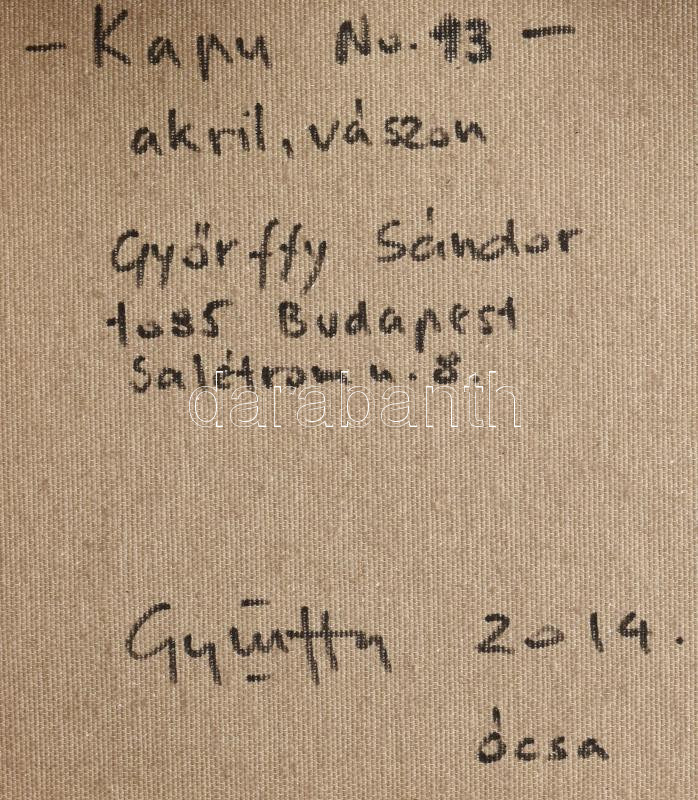 - Kapu No. 13 -
akril, vászon
Győrffy Sándor
1085 Budapest
Salétrom u. 8.
darabanth
Győrffy 2014.
ócsa